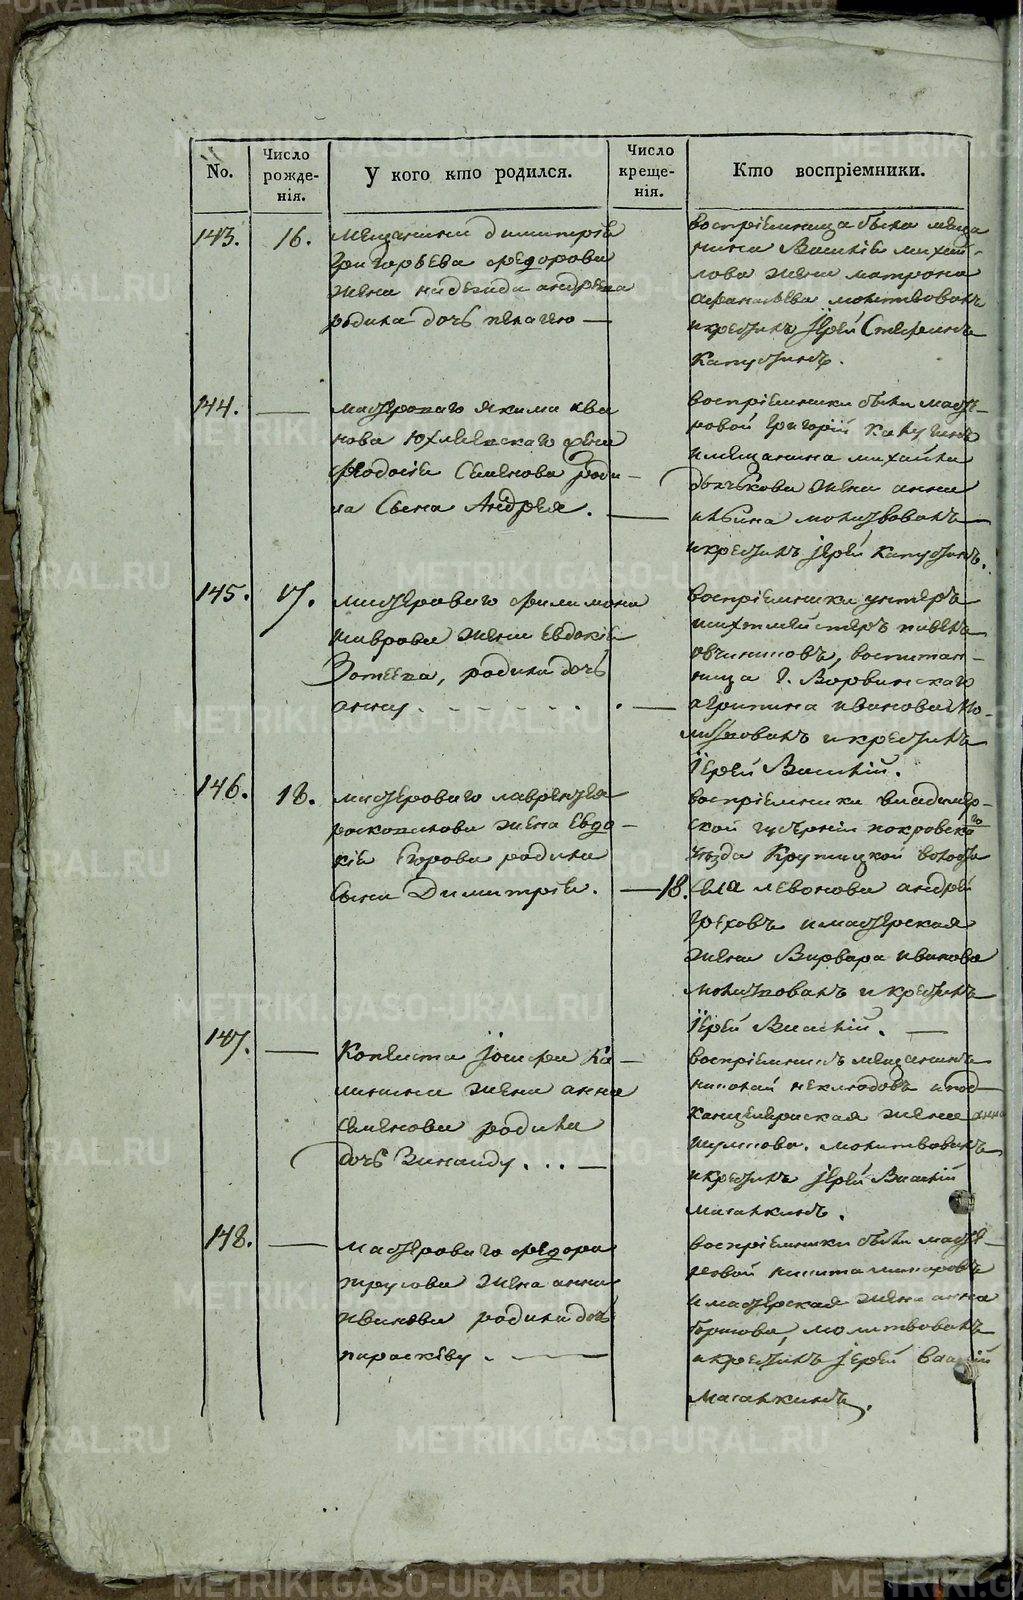 No.
Число рожде-нія.
У кого кто родился.
Число креще-нія.
Кто воспріемники.
143.
16.
мещанина димитрія
Григорьева федорова
жена надежда андрѣева
родила дочь пелагею —
воспріемница была меща
нина Василія михай-
лова жена матрона
афанасьева молитвовалъ
и крестилъ іерей Стефанъ
Капустинъ.
144.
—
мастероваго якима ива
нова жена
феодосія Семенова роди-
ла Сына Андрея. —
воспріемники были масте-
ровой григорій калугинъ
и мещанина михайла
жена анна
ильина молитвовалъ
и крестилъ іерей капустинъ.
145.
17.
мастероваго филимона
лаврова жена Евдокія
родила дочь
анну.
воспріемники унтеръ
шихтмейстеръ павелъ
овчинниковъ, воспитан-
ница г.
агрипина иванова мо-
литвовалъ и крестилъ
іерей Василій.
146.
18.
мастероваго лаврентея
жена Евдо-
кія Егорова родила
Сына Димитрія. — 18.
воспріемники владимер-
ской губерніи покровскаго
уѣзда Крутицкой волости
села левонова андрей
Греховъ и мастерская
жена Варвара иванова
молитвовалъ и крестилъ
іерей Василій. —
147.
—
Кописта іосифа Ка-
линина жена анна
семенова родила
дочь Зинаиду. . . . —
воспріемникъ мещанинъ
николай неклюдовъ и под
канцелярская жена анна
шумкова. молитвовалъ
и крестилъ іерей Василій
масалкинъ.
148.
—
мастероваго федора
трусова жена анна
иванова родила дочь
параскеву. —
воспріемники были масте-
ровой никита макаровъ
и мастерская жена анна
молитвовалъ
и крестилъ іерей василій
масалкинъ.
METRIKI.GASO-URAL.RU